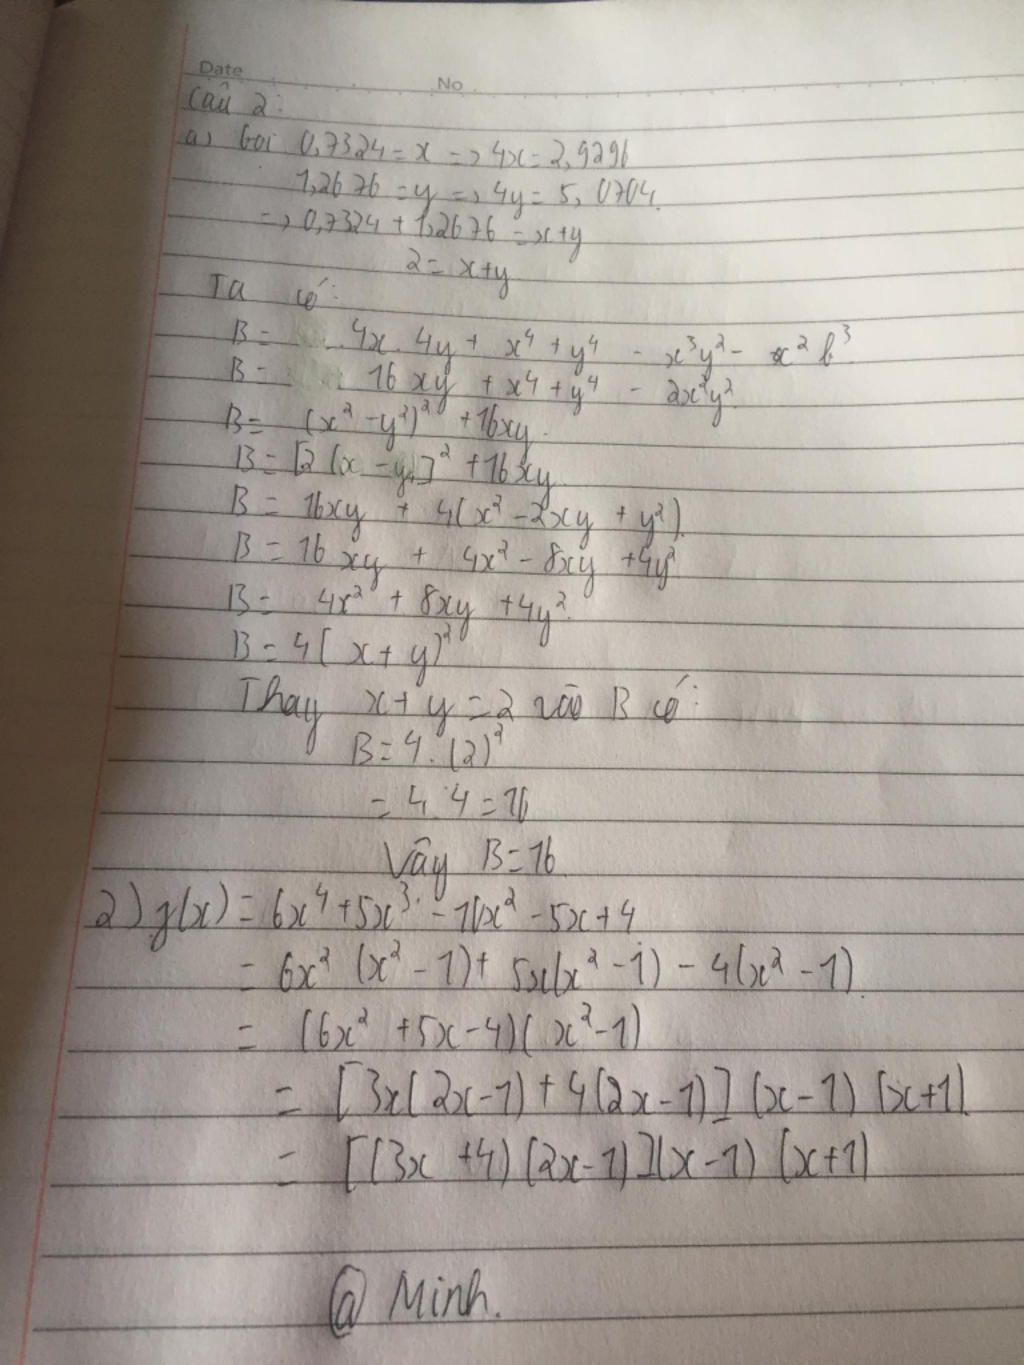 Date No
Câu 2:
a) Gọi 0,7324 = x => 4x = 2,9296
1,2676 = y => 4y = 5,0704.
=> 0,7324 + 1,2676 = x+y
2 = x+y
Ta có:
B = 4x. 4y + x⁴ + y⁴ - x³y² - x² b³
B = 16 xy + x⁴ + y⁴ - 2x²y².
B = (x² - y²)² + 16xy.
B = [2(x - y)]² + 16xy
B = 16xy + 4(x² - 2xy + y²).
B = 16 xy + 4x² - 8xy + 4y²
B = 4x² + 8xy + 4y².
B = 4(x + y)²
Thay x + y = 2 vào B có:
B = 4. (2)²
= 4. 4 = 16
Vậy B = 16
2) g(x) = 6x⁴ + 5x³ - 10x² - 5x + 4
= 6x² (x² - 1) + 5x(x² - 1) - 4(x² - 1).
= (6x² + 5x - 4)(x² - 1)
= [3x(2x - 1) + 4(2x - 1)] (x - 1) (x + 1).
= [(3x + 4) (2x - 1)](x - 1) (x + 1)
@ Minh.